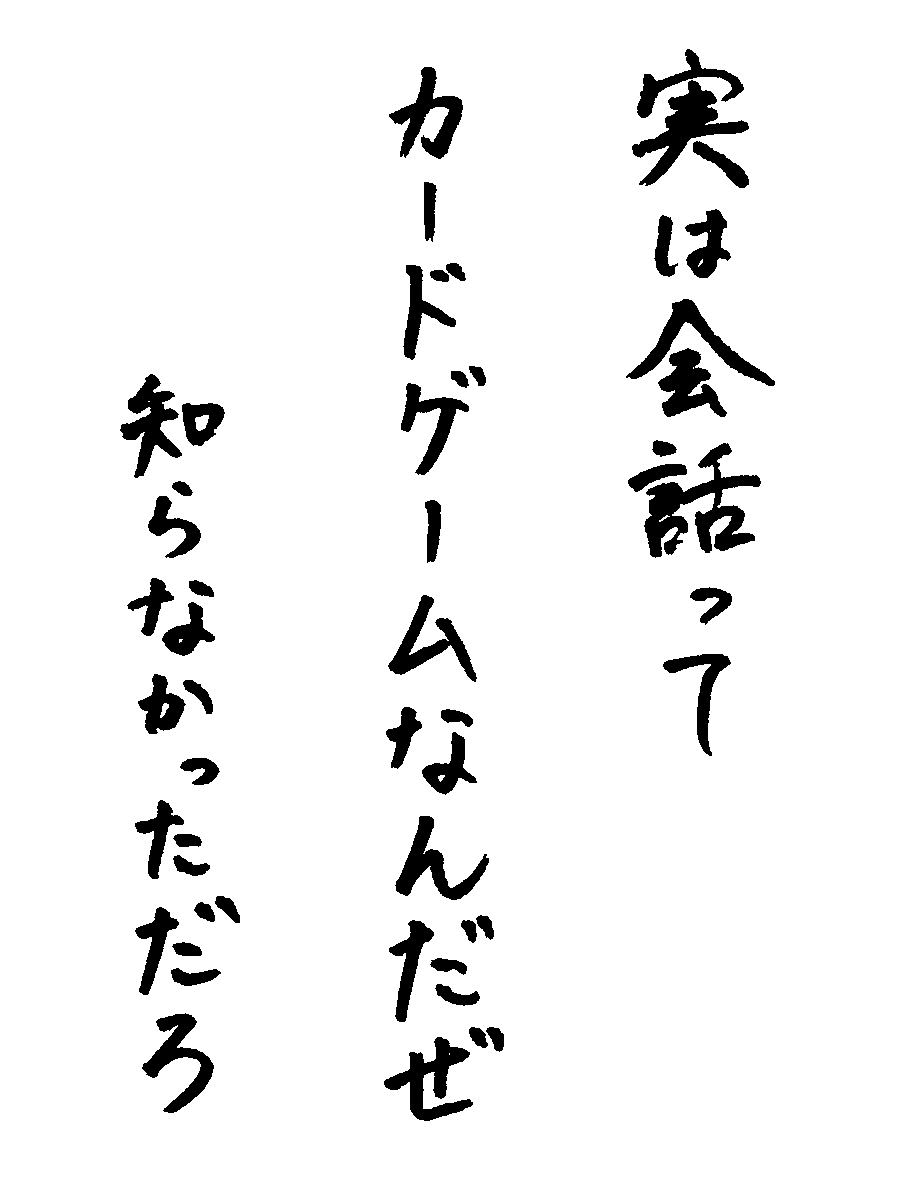 実は会話って
カードゲームなんだぜ
知らなかっただろ